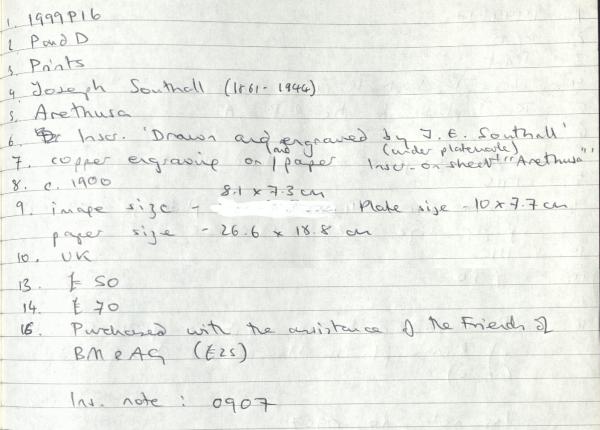 1. 1999P16
2. P and D
3. Prints
4. Joseph Southall (1861-1944)
5. Arethusa
6. Inscr. 'Drawn and engraved by J. E. Southall'
(under platemark)
7. copper engraving on paper Inscr. on sheet "Arethusa"
8. c. 1900
8.1 x 7.3 cm
9. image size - Plate size - 10 x 7.7 cm
paper size - 26.6 x 18.8 cm
10. UK
13. £ 50
14. £ 70
15. Purchased with the assistance of the Friends of
BM & AG (£25)
Inv. note : 0907